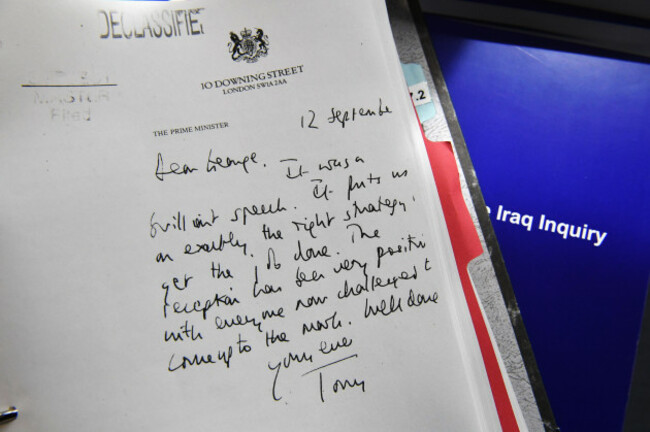 DECLASSIFIE
10 DOWNING STREET
LONDON SW1A 2AA
MASTER
Filed
THE PRIME MINISTER
12 September
Dear George. It was a
brilliant speech. It puts us
on exactly the right strategy to
get the job done. The
reception has been very positive
with everyone now challenged to
come up to the mark. Well done
Yours ever
Tony
7.2
Iraq Inquiry